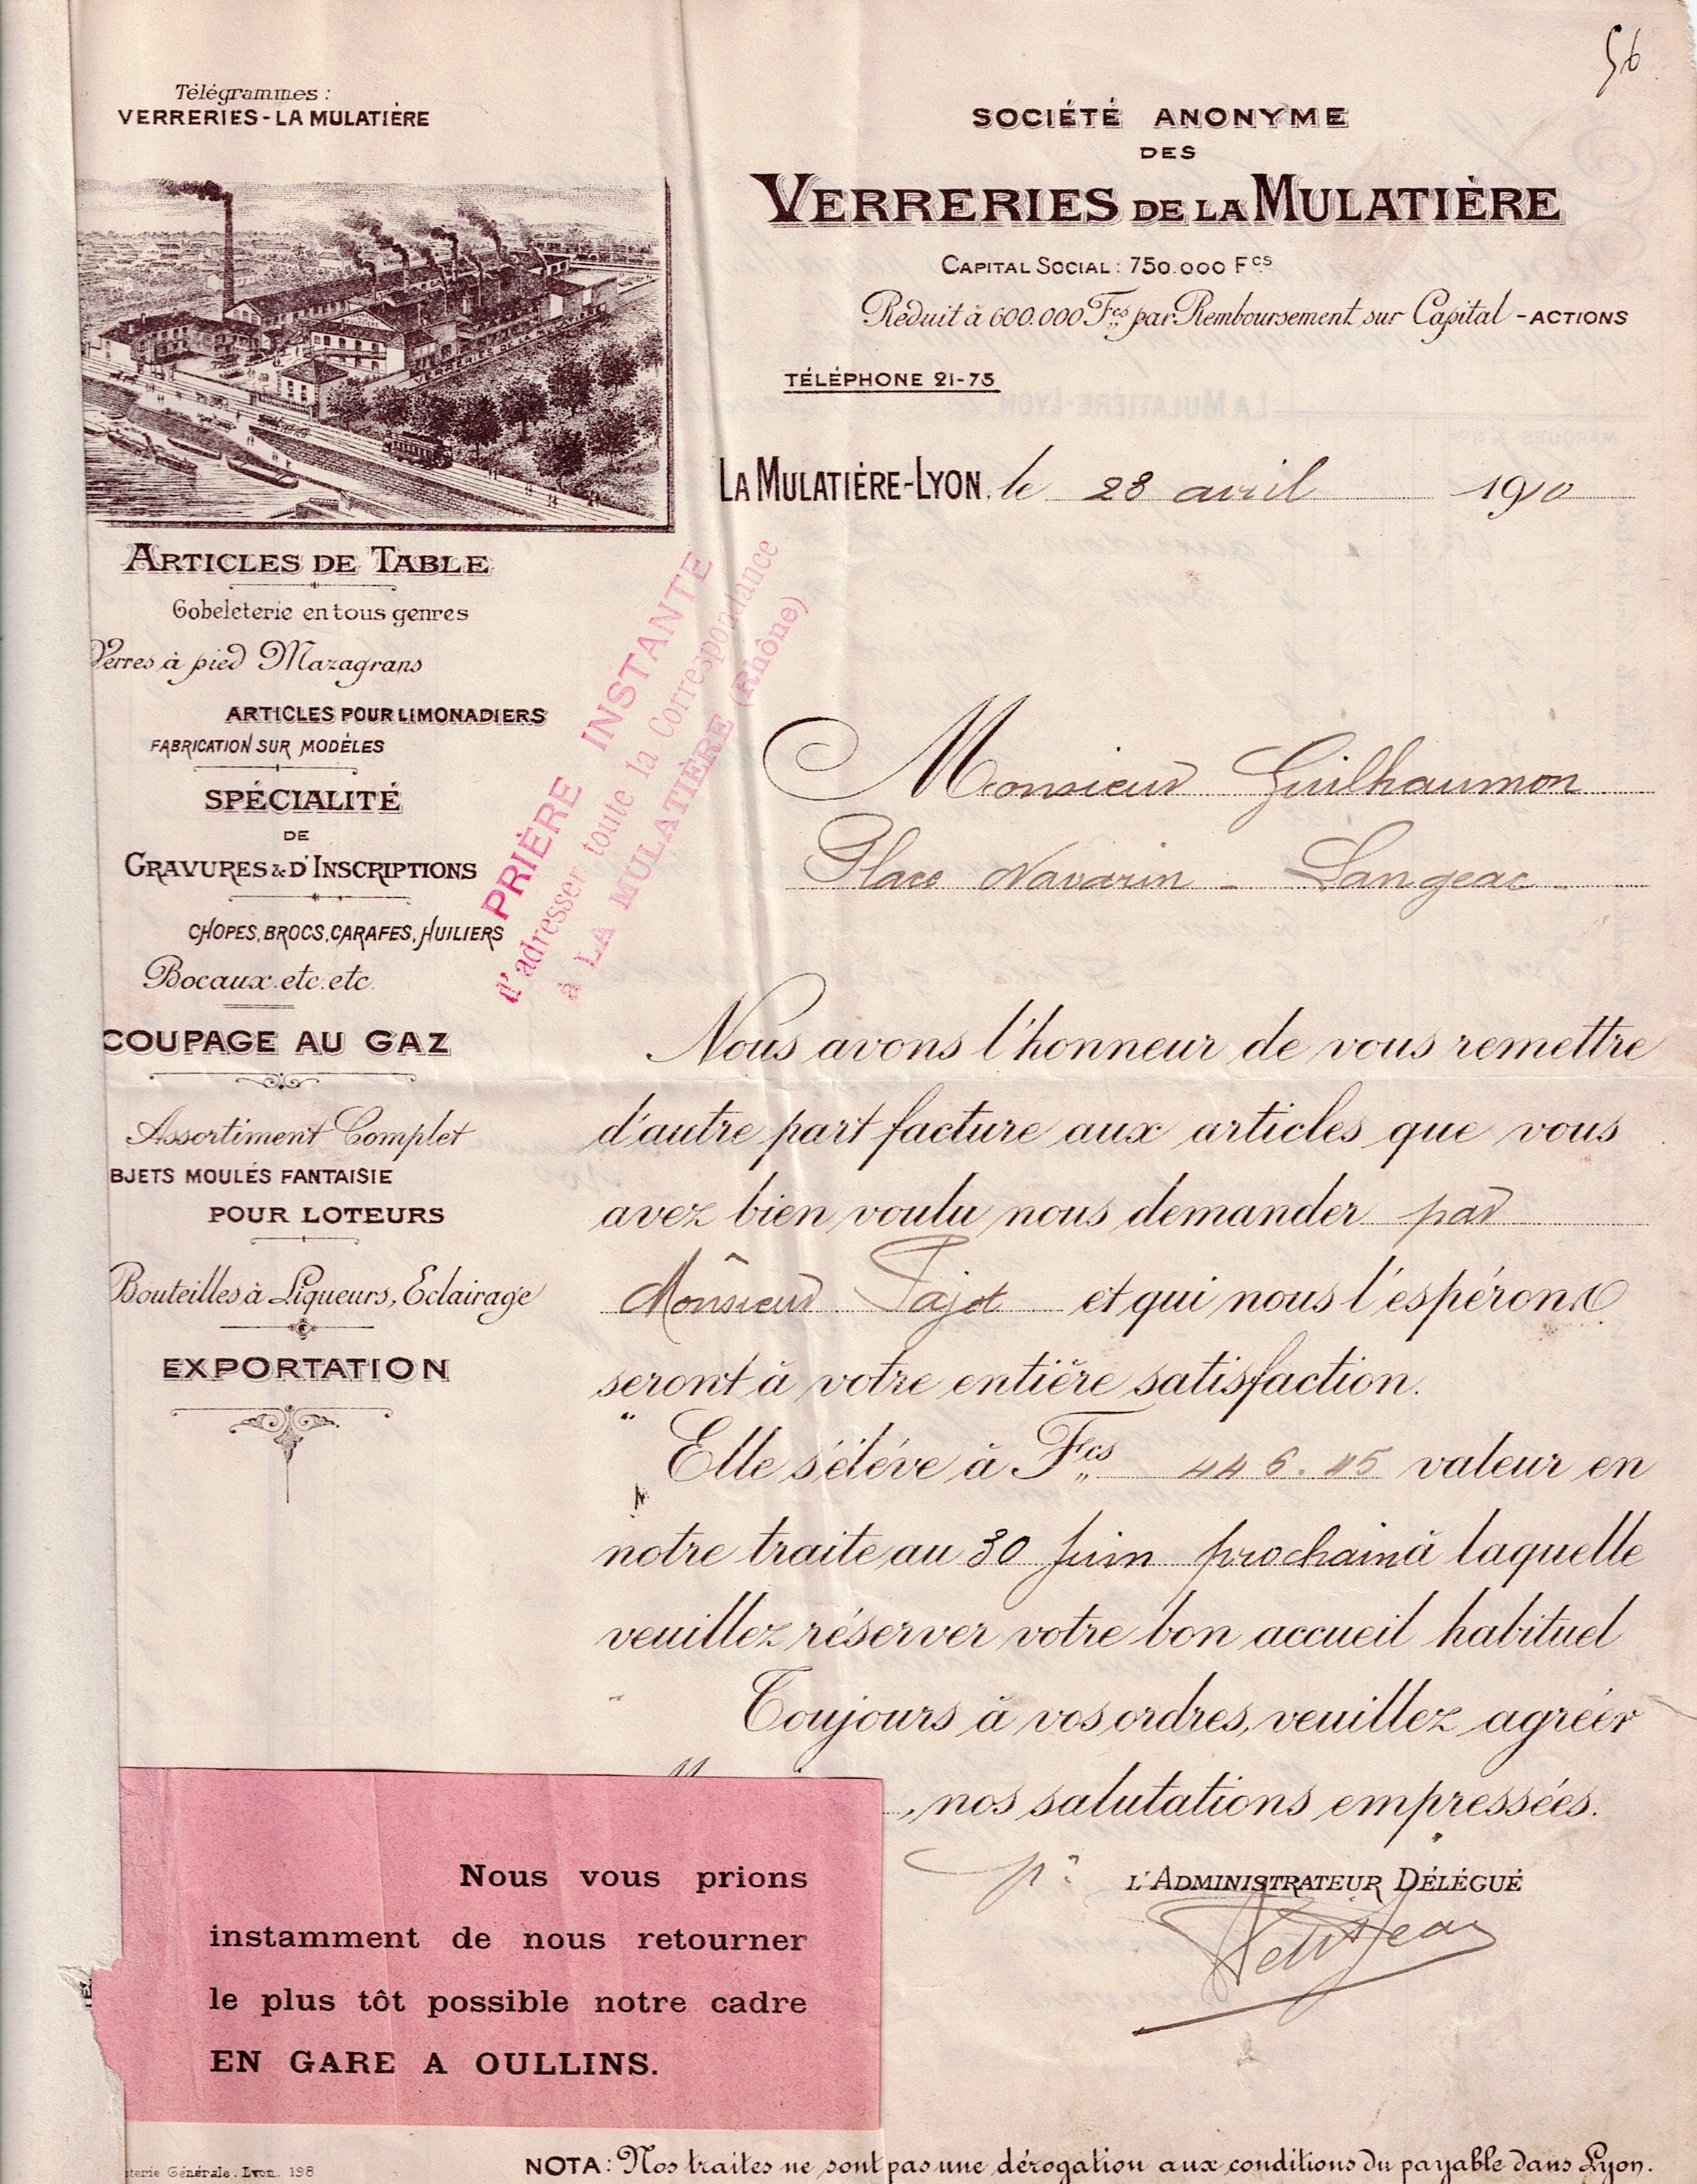 56
Télégrammes :
VERRERIES - LA MULATIÈRE
SOCIÉTÉ ANONYME
DES
VERRERIES DE LA MULATIÈRE
CAPITAL SOCIAL : 750.000 Fcs
Réduit à 600.000 Fcs par Remboursement sur Capital - ACTIONS
TÉLÉPHONE 21-75
LA MULATIÈRE-LYON, le 28 avril 1910
VERRERIES DE LA MULATIERE
ARTICLES DE TABLE
Gobeleterie en tous genres
Verres à pied Mazagrans
ARTICLES POUR LIMONADIERS
FABRICATION SUR MODÈLES
SPÉCIALITÉ
DE
GRAVURES & D'INSCRIPTIONS
CHOPES, BROCS, CARAFES, HUILIERS
Bocaux. etc. etc.
COUPAGE AU GAZ
Assortiment Complet
BJETS MOULÉS FANTAISIE
POUR LOTEURS
Bouteilles à Liqueurs, Eclairage
EXPORTATION
PRIÈRE INSTANTE
d'adresser toute la Correspondance
à LA MULATIÈRE (Rhône)
Monsieur Guilhaumon
Place Navarin - Langeac
Nous avons l'honneur de vous remettre
d'autre part facture aux articles que vous
avez bien voulu nous demander par
Monsieur Pajot et qui nous l'espérons
seront à votre entière satisfaction.
Elle s'élève à Fcs 446.45 valeur en
notre traite au 30 Juin prochain à laquelle
veuillez réserver votre bon accueil habituel
Toujours à vos ordres, veuillez agréer
, nos salutations empressées.
pr L'ADMINISTRATEUR DÉLÉGUÉ
Petitjean
Nous vous prions
instamment de nous retourner
le plus tôt possible notre cadre
EN GARE A OULLINS.
terie Générale. Lyon. 198
NOTA : Nos traites ne sont pas une dérogation aux conditions du payable dans Lyon.